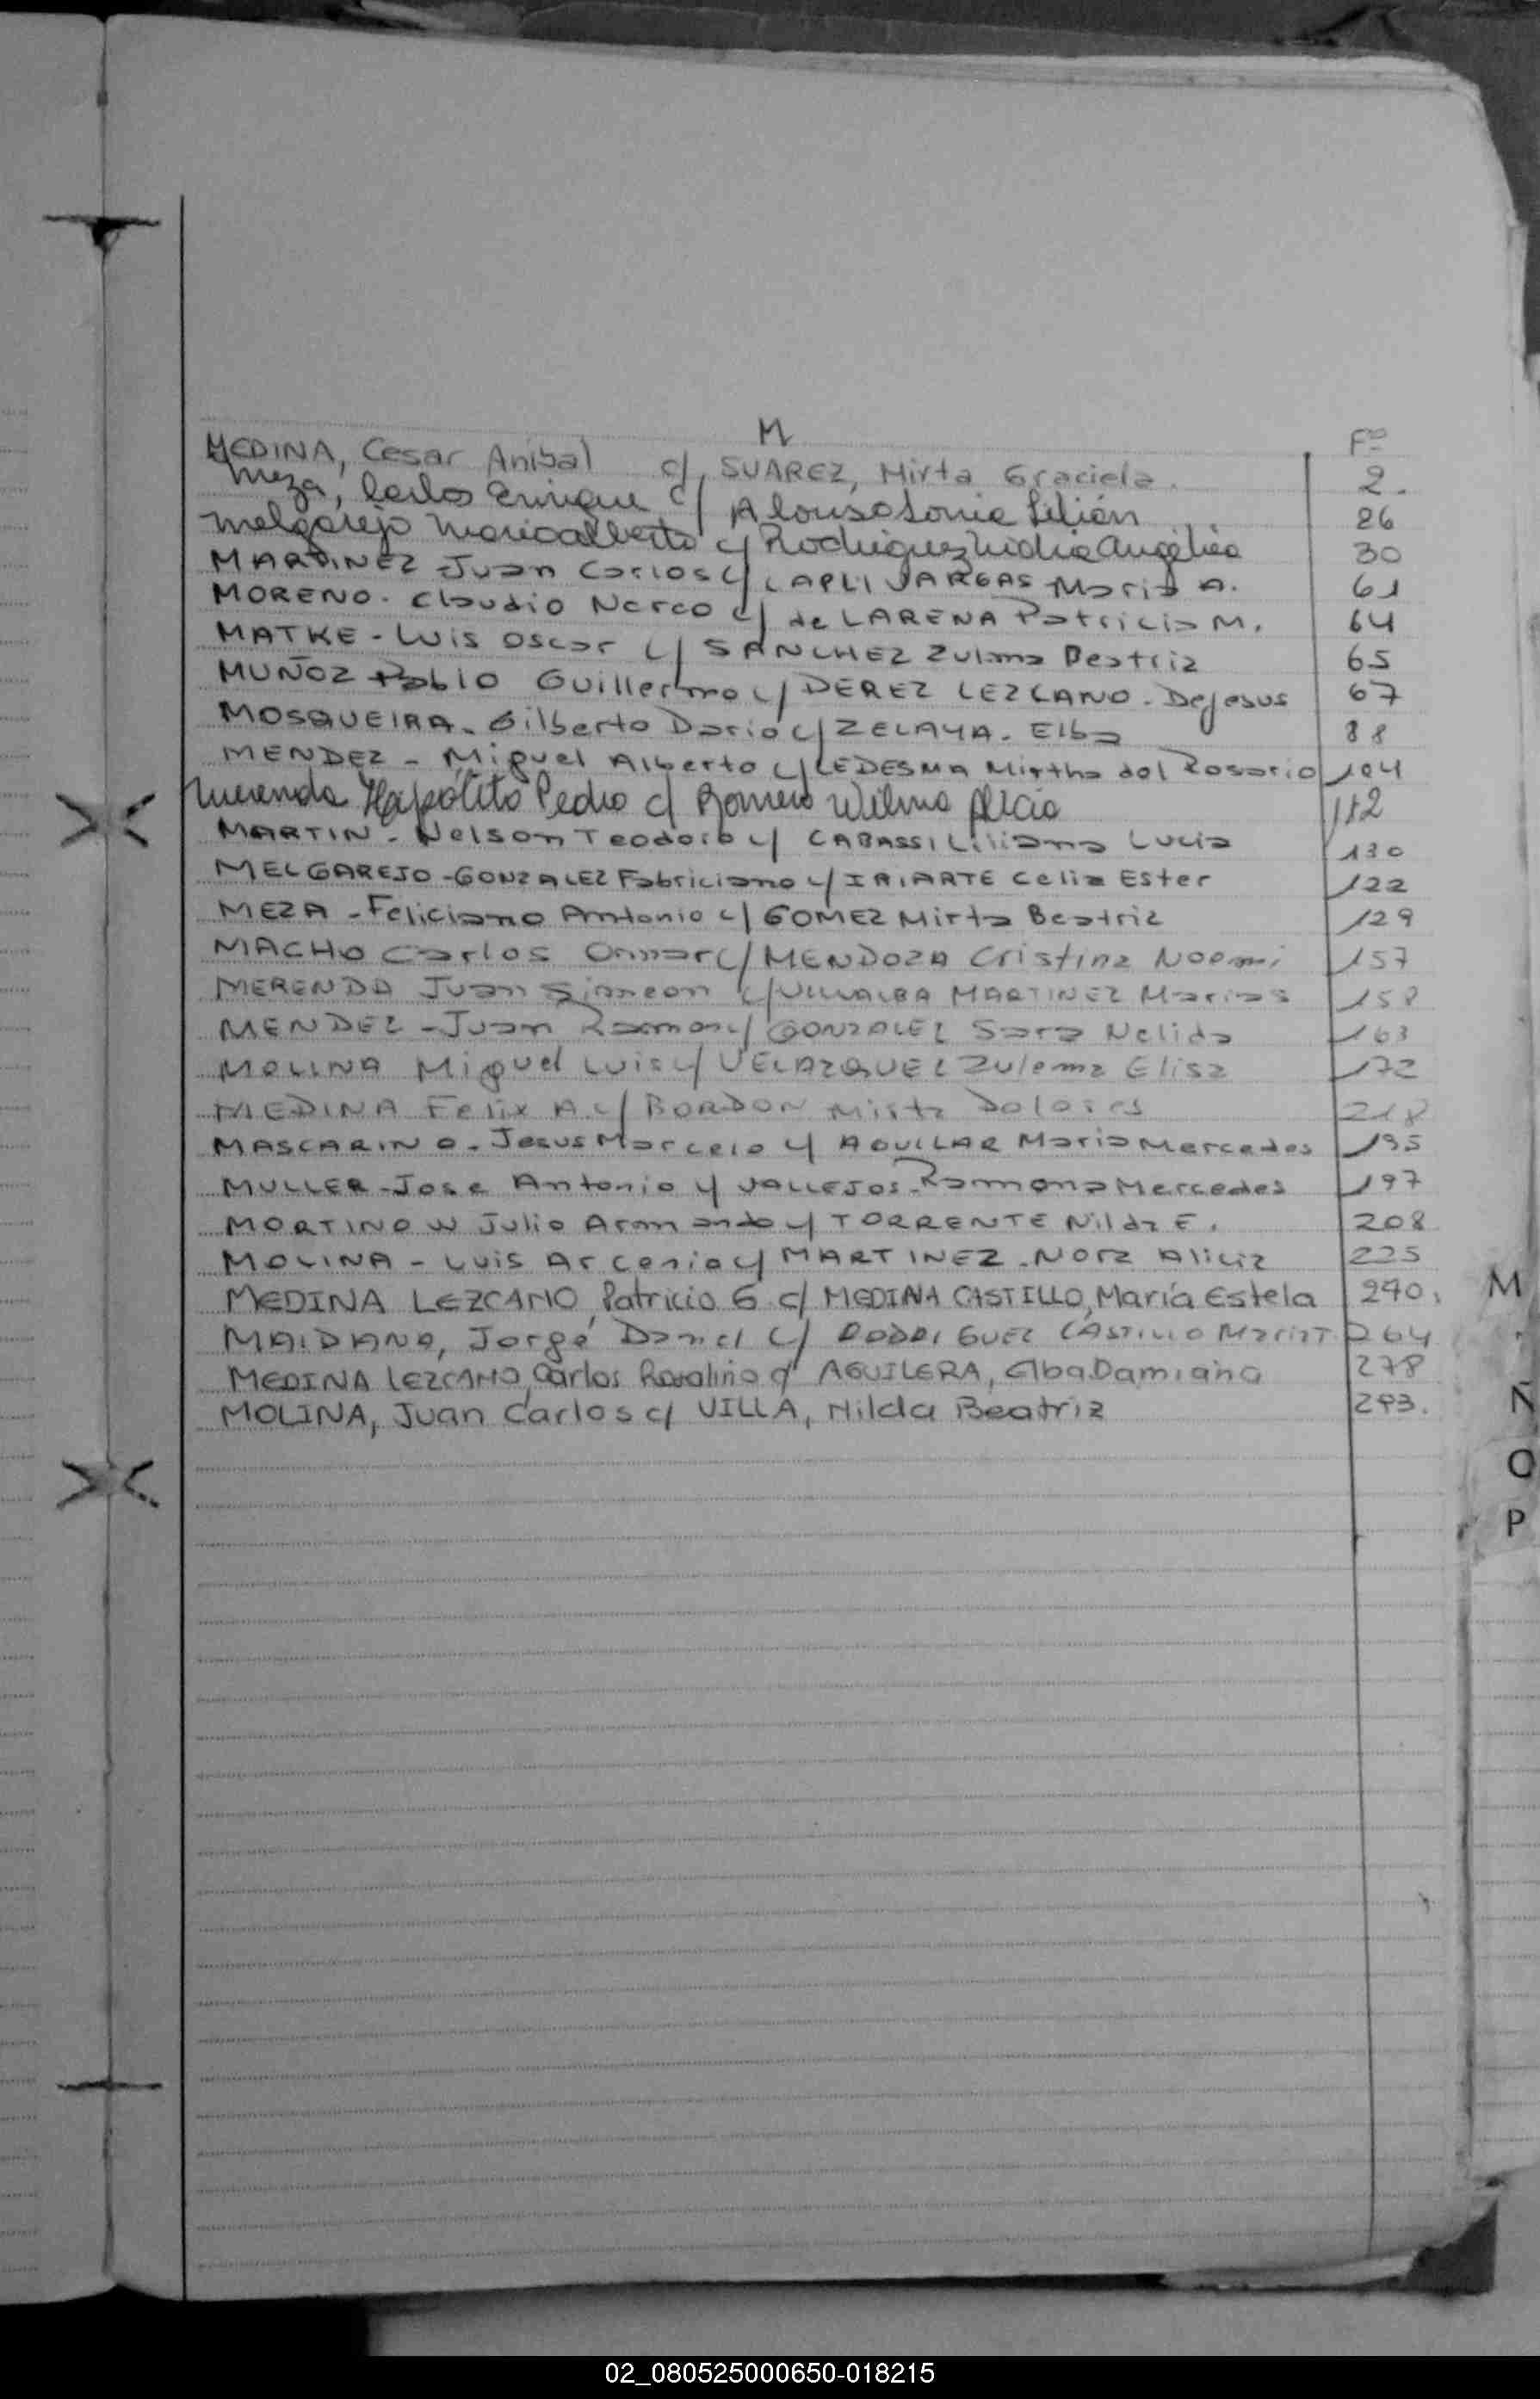 M
Fº
MEDINA, Cesar Anibal c/ SUAREZ, Mirta Graciela. 2.
Meza, Carlos Enrique c/ Alonso Sonia Lilián 26
Melgarejo Mario Alberto c/ Rodriguez Nidia Angélica 30
MARTINEZ Juan Carlos c/ VARGAS Maria A. 61
MORENO. Claudio Nerco c/ de LARENA Patricia M. 64
MATKE - Luis Oscar c/ SANCHEZ Zulma Beatriz 65
MUÑOZ Pablo Guillermo c/ PEREZ LEZCANO. Dejesus 67
MOSQUEIRA. Gilberto Dario c/ ZELAYA. Elba 88
MENDEZ - Miguel Alberto c/ LEDESMA Mirtha del Rosario 104
Merenda Hipólito Pedro c/ Romero Wilma Alicia 112
MARTIN - Nelson Teodoro c/ CABASSI Liliana Lucia 130
MELGAREJO - GONZALEZ Fabriciano c/ IRIARTE Celia Ester 122
MEZA - Feliciano Antonio c/ GOMEZ Mirta Beatriz 129
MACHO Carlos Omar c/ MENDOZA Cristina Noemi 157
MERENDA Juan Simeon c/ VILLALBA MARTINEZ 158
MENDEZ - Juan Ramon c/ GONZALEZ Sara Nelida 163
MOLINA Miguel Luis c/ VELAZQUEZ Zulema Elisa 172
MEDINA Felix A. c/ BORDON Mirta Dolores 218
MASCARINO - Jesus Marcelo c/ AGUILAR Maria Mercedes 195
MULLER - Jose Antonio c/ VALLEJOS - Ramona Mercedes 197
Julio Armando c/ TORRENTE Nilda E. 208
MOLINA - Luis Arcenio c/ MARTINEZ - Nora Alicia 225
MEDINA LEZCANO, Patricio G. c/ MEDINA CASTILLO, María Estela 240. M
MAIDANA, Jorge Daniel c/ RODRIGUEZ CASTILLO 264
MEDINA LEZCANO, Carlos Rosalino c/ AGUILERA, Elba Damiana 278
MOLINA, Juan Carlos c/ VILLA, Hilda Beatriz 293. Ñ
O
P
02_080525000650-018215